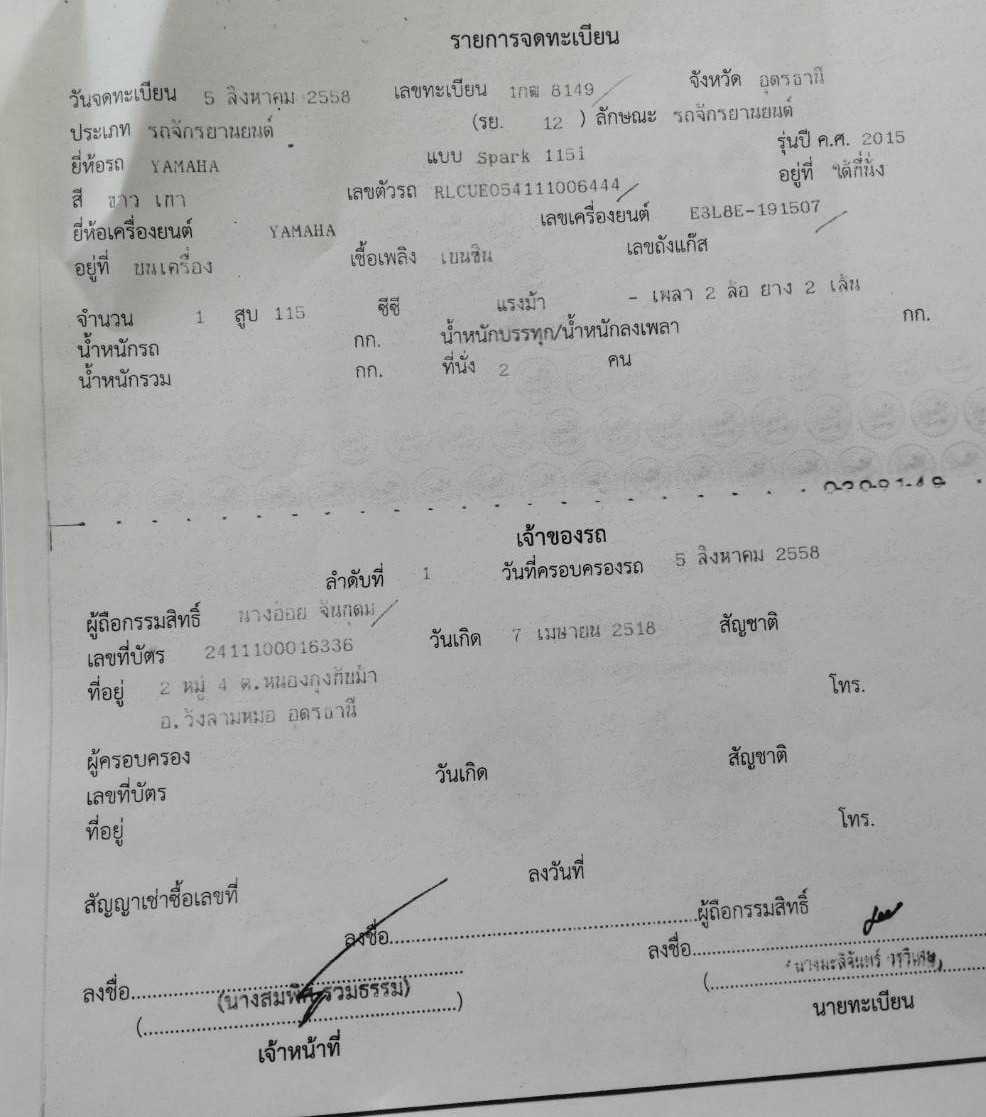 รายการจดทะเบียน
วันจดทะเบียน 5 สิงหาคม 2558 เลขทะเบียน 1กฒ 8149 จังหวัด อุดรธานี
ประเภท รถจักรยานยนต์ (รย. 12 ) ลักษณะ รถจักรยานยนต์
ยี่ห้อรถ YAMAHA แบบ Spark 115i รุ่นปี ค.ศ. 2015
สี ขาว เทา เลขตัวรถ RLCUE054111006444 อยู่ที่ ใต้ที่นั่ง
ยี่ห้อเครื่องยนต์ YAMAHA เลขเครื่องยนต์ E3L8E-191507
อยู่ที่ บนเครื่อง เชื้อเพลิง เบนซิน เลขถังแก๊ส
จำนวน 1 สูบ 115 ซีซี แรงม้า - เพลา 2 ล้อ ยาง 2 เส้น
น้ำหนักรถ กก. น้ำหนักบรรทุก/น้ำหนักลงเพลา กก.
น้ำหนักรวม กก. ที่นั่ง 2 คน
เจ้าของรถ
ลำดับที่ 1 วันที่ครอบครองรถ 5 สิงหาคม 2558
ผู้ถือกรรมสิทธิ์ นางอ้อย จันทุดม
เลขที่บัตร 2411100016336 วันเกิด 7 เมษายน 2518 สัญชาติ
ที่อยู่ 2 หมู่ 4 ต.หนองกุงทับม้า โทร.
อ.วังสามหมอ อุดรธานี
ผู้ครอบครอง
เลขที่บัตร วันเกิด สัญชาติ
ที่อยู่ โทร.
สัญญาเช่าซื้อเลขที่ ลงวันที่
ลงชื่อ ผู้ถือกรรมสิทธิ์
ลงชื่อ ลงชื่อ
(นางสมพิศ รวมธรรม)
เจ้าหน้าที่ นายทะเบียน